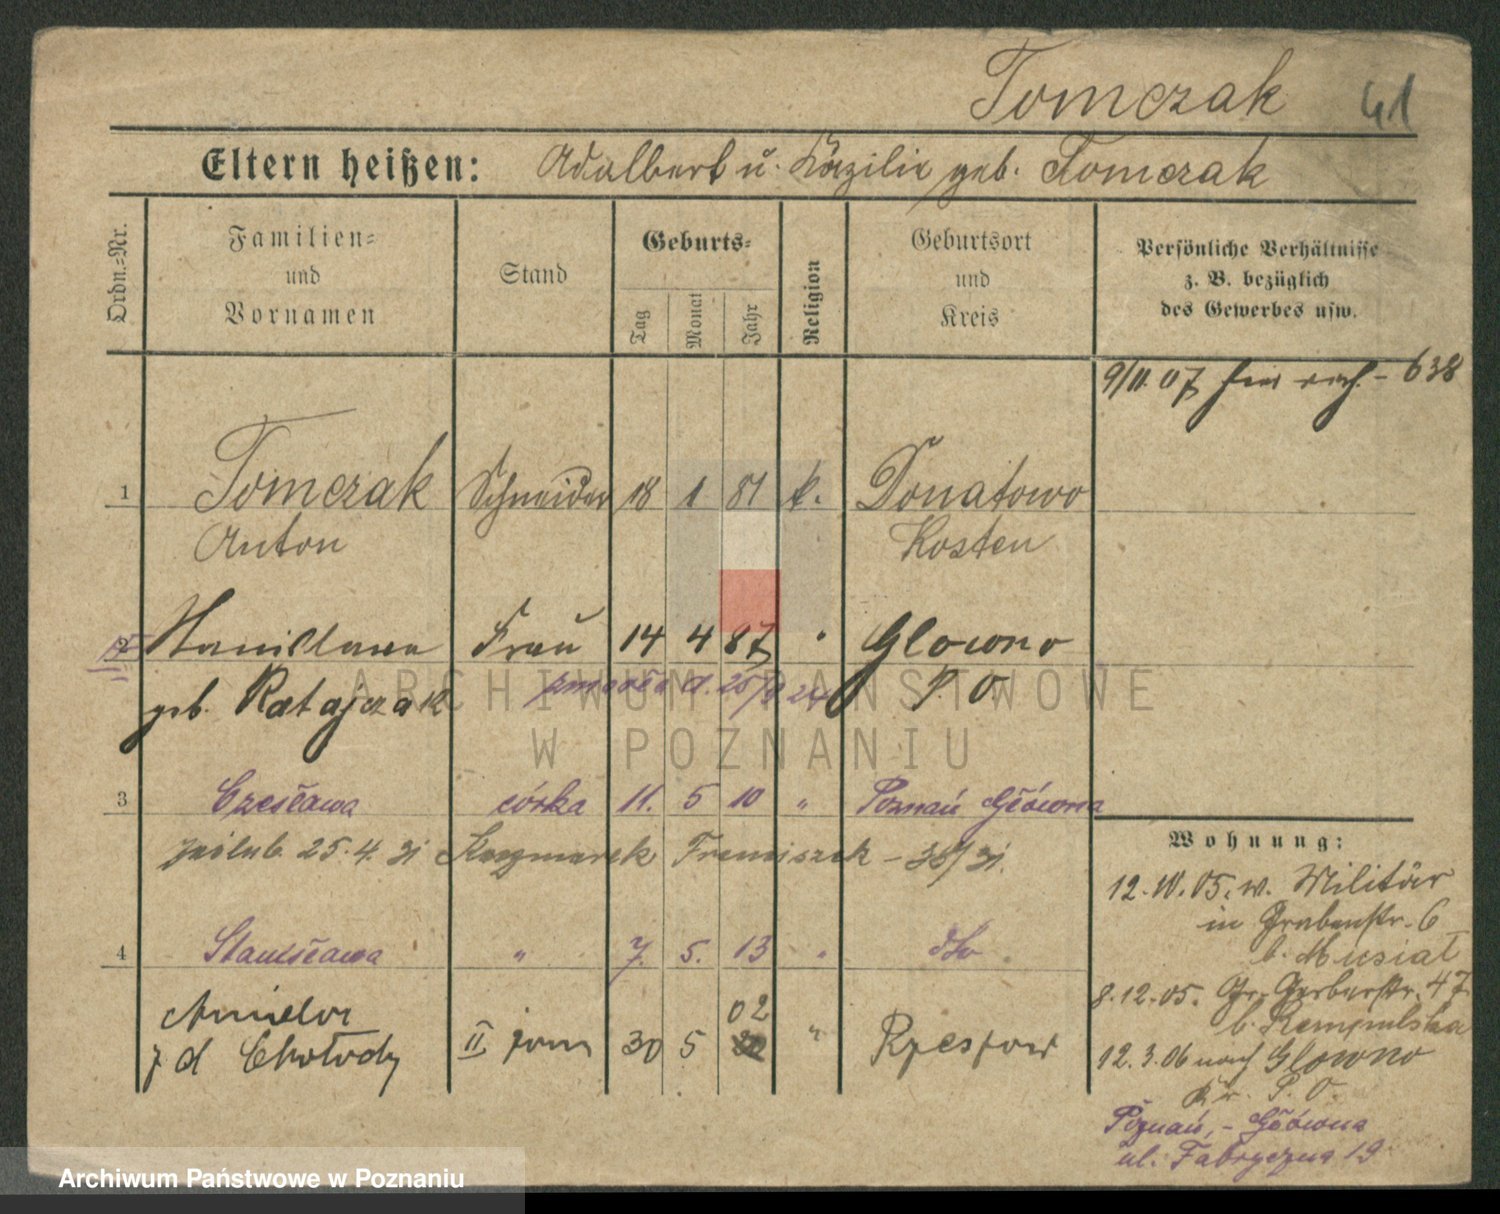 Tomczak 41
Eltern heißen: Adalbert u. Käzilie geb. Tomczak
Ordn.-Nr.
Familien-
und
Vornamen
Stand
Geburts-
Tag
Monat
Jahr
Religion
Geburtsort
und
Kreis
Persönliche Verhältnisse
z. B. bezüglich
des Gewerbes usw.
9/11. 07 - 638
1 Tomczak Schneider 18 1 81 k. Donatowo
Anton Kosten
2 Stanislawa Frau 14 4 87 " Glowno
geb. Ratajczak P. O.
zmarła d. 25/9 24
3 Czesława córka 11. 5 10 " Poznań Główna
zaślub. 25. 4. 31 Kaczmarek Franciszek - 31.
4 Stanisława " 7. 5. 13 " dto
02
z d Chołody II żona 30 5 " Rzeszow
Wohnung:
12. 10. 05. v. Militär
in Grabenstr. 6
b. Musiał
8. 12. 05. Gr. Gerberstr. 47
b. Rempulska
12. 3. 06 nach Glowno
Kr. P. O.
Poznań, - Główna
ul. Fabryczna 19
ARCHIWUM PAŃSTWOWE
W POZNANIU
Archiwum Państwowe w Poznaniu